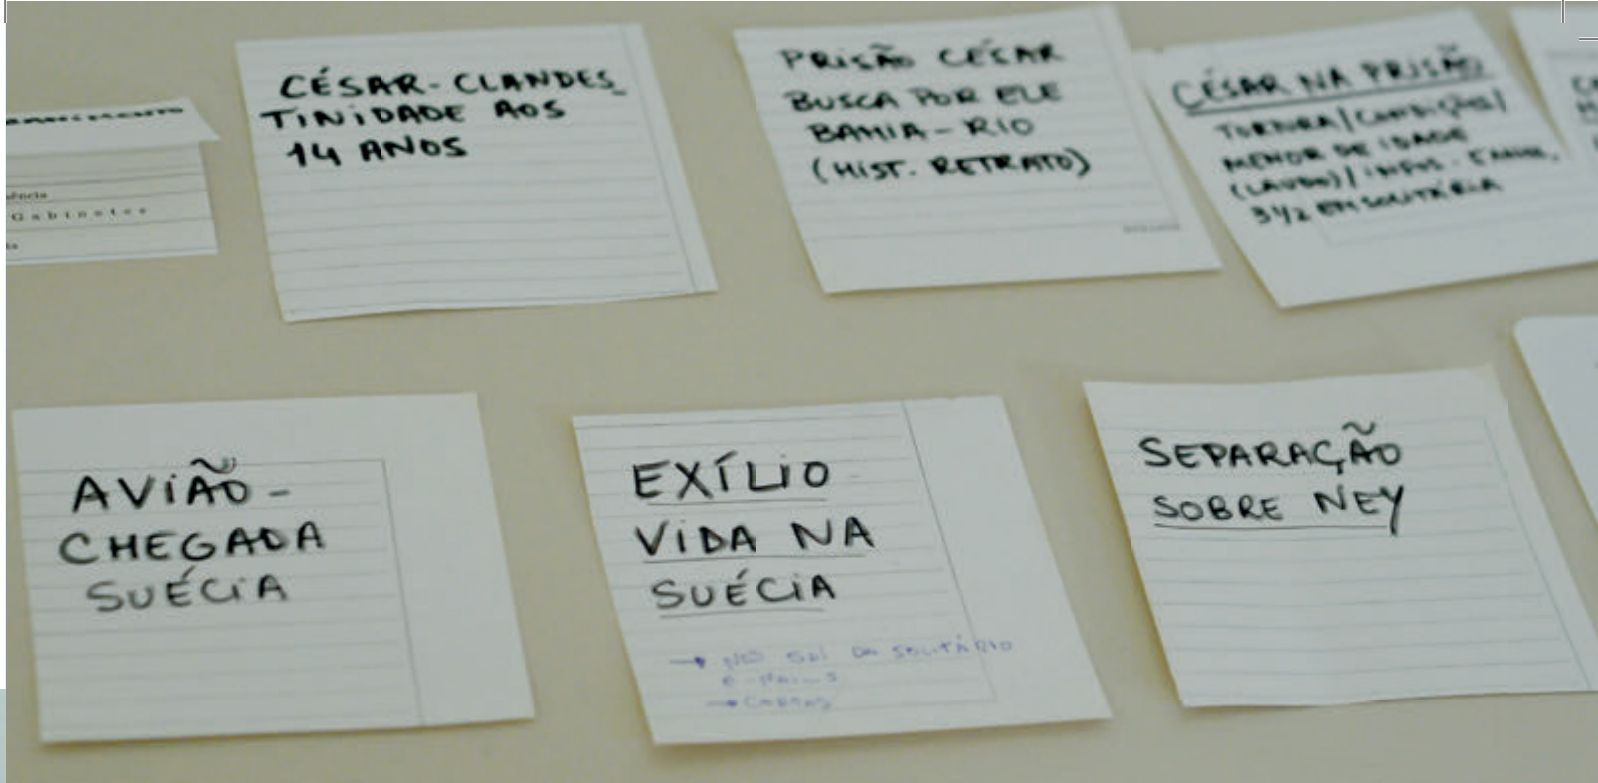 ência
Gabinetes
CÉSAR - CLANDES_
TINIDADE AOS
14 ANOS
PRISÃO CÉSAR
BUSCA POR ELE
BAHIA - RIO
(HIST. RETRATO)
CÉSAR NA PRISÃO
TORTURA/CONDIÇÕES/
MENOR DE IDADE
(LAUDO)/INFOS.
3 1/2 EM SOLITÁRIA
AVIÃO -
CHEGADA
SUÉCIA
EXÍLIO
VIDA NA
SUÉCIA
→ SOLITÁRIO
→ CARTAS
SEPARAÇÃO
SOBRE NEY